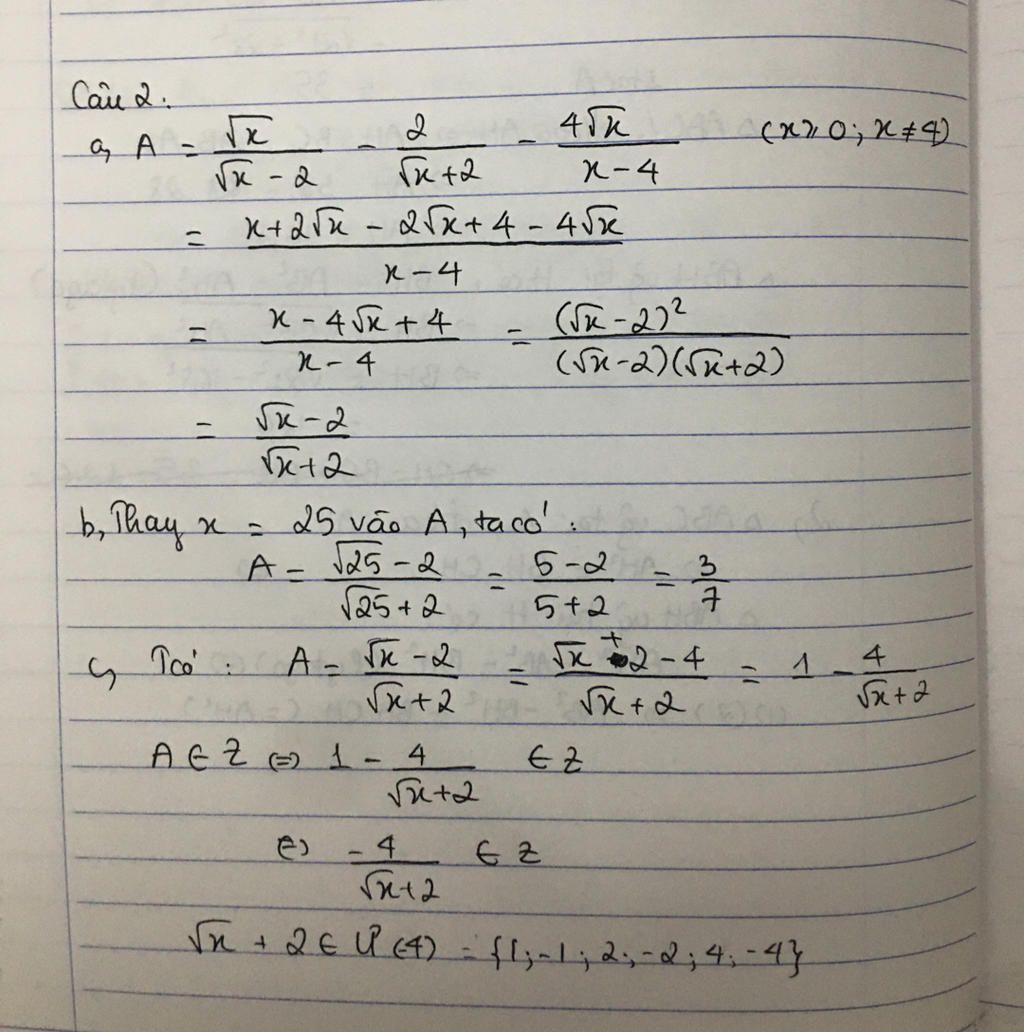 Câu 2:
a, A = √x/(√x - 2) - 2/(√x + 2) - 4√x/(x - 4) (x ≥ 0; x ≠ 4)
= (x + 2√x - 2√x + 4 - 4√x)/(x - 4)
= (x - 4√x + 4)/(x - 4) = (√x - 2)²/((√x - 2)(√x + 2))
= (√x - 2)/(√x + 2)
b, Thay x = 25 vào A, ta có:
A = (√25 - 2)/(√25 + 2) = (5 - 2)/(5 + 2) = 3/7
c, Tcó: A = (√x - 2)/(√x + 2) = (√x + 2 - 4)/(√x + 2) = 1 - 4/(√x + 2)
A ∈ Z ⇔ 1 - 4/(√x + 2) ∈ Z
⇔ -4/(√x + 2) ∈ Z
√x + 2 ∈ Ư(-4) = {1; -1; 2; -2; 4; -4}